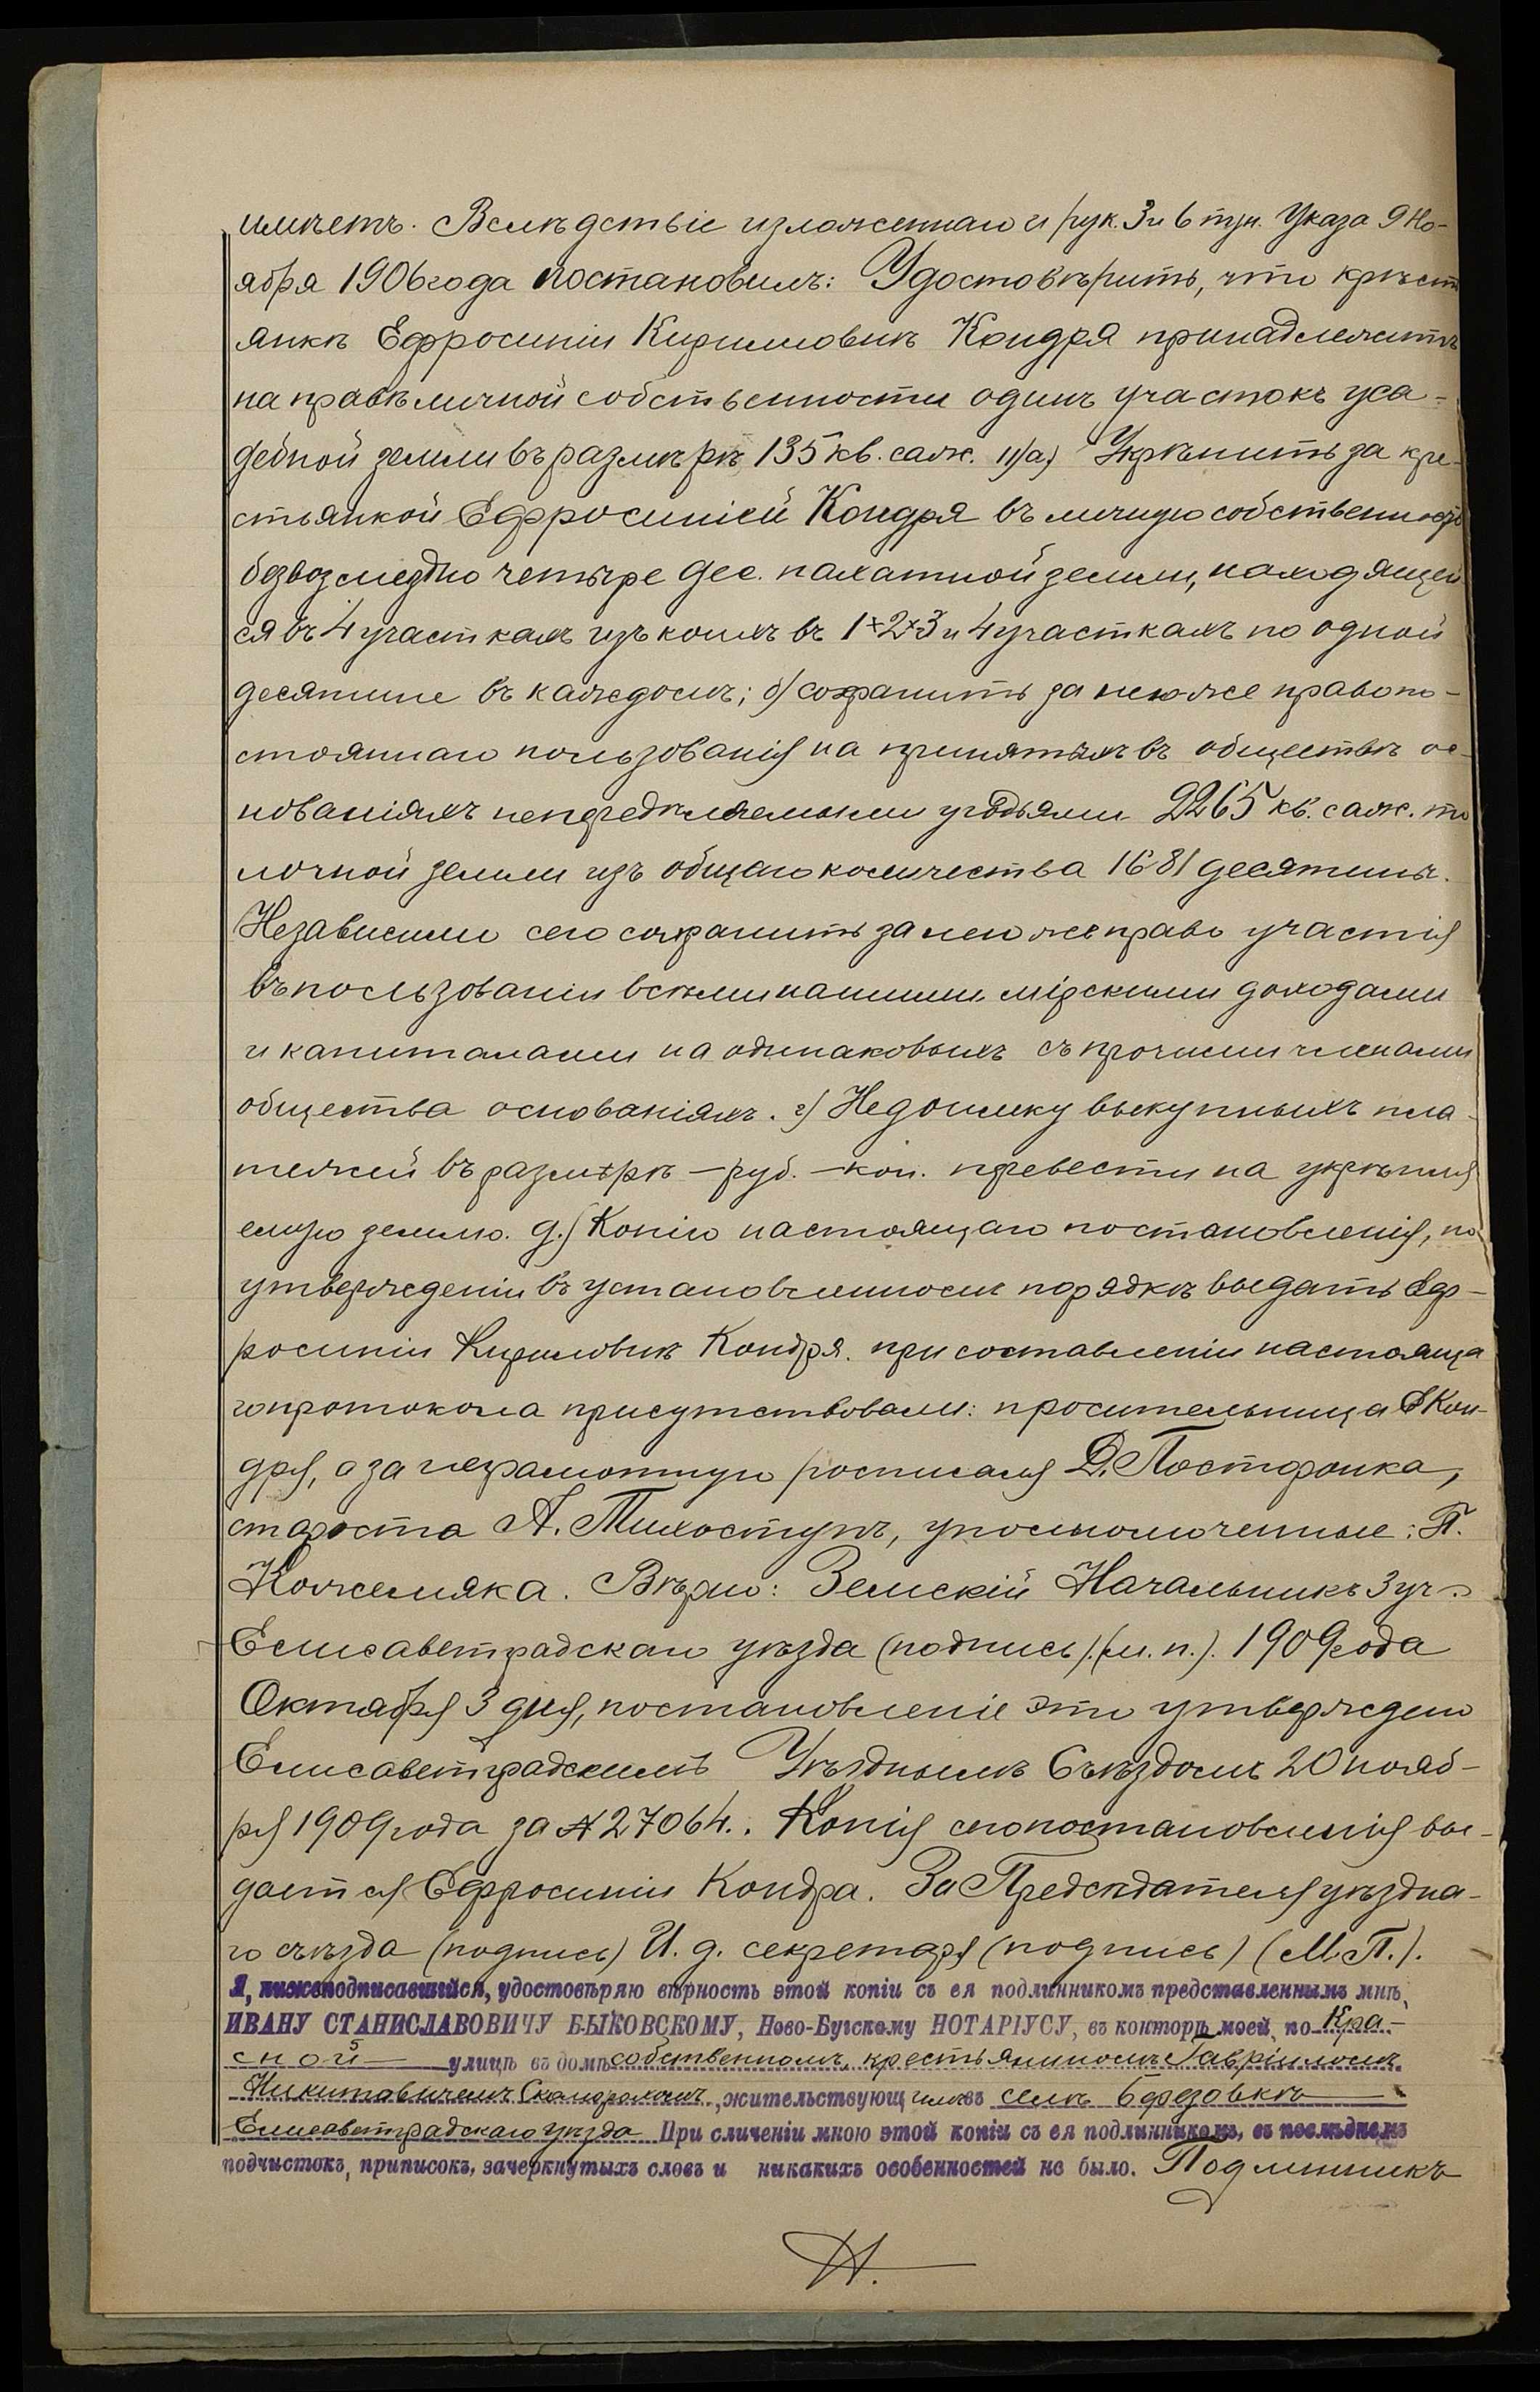 имѣетъ. Вслѣдствіе изложеннаго и рук. 3 и 6 пун. Указа 9 Но-
ября 1906 года постановилъ: Удостовѣрить, что крѣст
янкѣ Ефросиніи Кирилловнѣ Кондря принадлежитъ
на правѣ личной собственности одинъ участокъ уса-
дебной земли въ размѣрѣ 135 кв. саж. II/а) Укрѣпить за кре-
стьянкой Ефросиніей Кондря въ личную собственность
безвозмездно четыре дес. пахатной земли, находящей
ся въ 4 участкахъ изъ коихъ въ 1×2×3 и 4 участкахъ по одной
десятине въ каждомъ; б) сохранить за нею же право по-
стояннаго пользованія на принятыхъ въ обществѣ ос-
нованіяхъ непредѣляемыми угодьями 2265 кв. саж. то
лочной земли изъ общаго количества 1681 десятины.
Независимо сего сохранить за нею же право участія
въ пользованіи всѣми нашими мірскими доходами
и капиталами на одинаковыхъ съ прочими членами
общества основаніяхъ. г) Недоимку выкупныхъ пла-
тежей въ размѣрѣ — руб. — коп. превести на укрѣпля
емую землю. д.) Копію настоящаго постановленія, по
утвержденіи въ установленномъ порядкѣ выдать Еф-
росиніи Кириловнѣ Кондря. при составленіи настояща
го протокола присутствовали: просительница Е Кон-
дря, а за неграмотную росписался Д. Постфонка,
староста А. Тихоступъ, уполномоченные: П.
Кожемяка. Вѣрно: Земскій Начальникъ 3 уч.
Елисаветградскаго уѣзда (подпись). (м. п.). 1909 года
Октября 3 дня, постановленіе это утверждено
Елисаветградскимъ Уѣзднымъ Съѣздомъ 20 нояб-
ря 1909 года за № 27064. Копія сего постановленія вы-
дается Ефросиніи Кондра. За Предсѣдателя уѣздна-
го съѣзда (подпись) И. д. секретаря (подпись) (М. П.).
Я, нижеподписавшійся, удостовѣряю вѣрность этой копіи съ ея подлинникомъ представленнымъ мнѣ,
ИВАНУ СТАНИСЛАВОВИЧУ БЫКОВСКОМУ, Ново-Бугскому НОТАРІУСУ, въ конторѣ моей, по Кра-
сной улицѣ въ домѣ собственномъ, крестьяниномъ Гавріиломъ
Никитовичемъ Скоморохомъ, жительствующимъ въ селѣ Березовкѣ
Елисаветградскаго уѣзда При сличеніи мною этой копіи съ ея подлинникомъ, въ послѣднемъ
подчистокъ, приписокъ, зачеркнутыхъ словъ и никакихъ особенностей не было. Подлинникъ